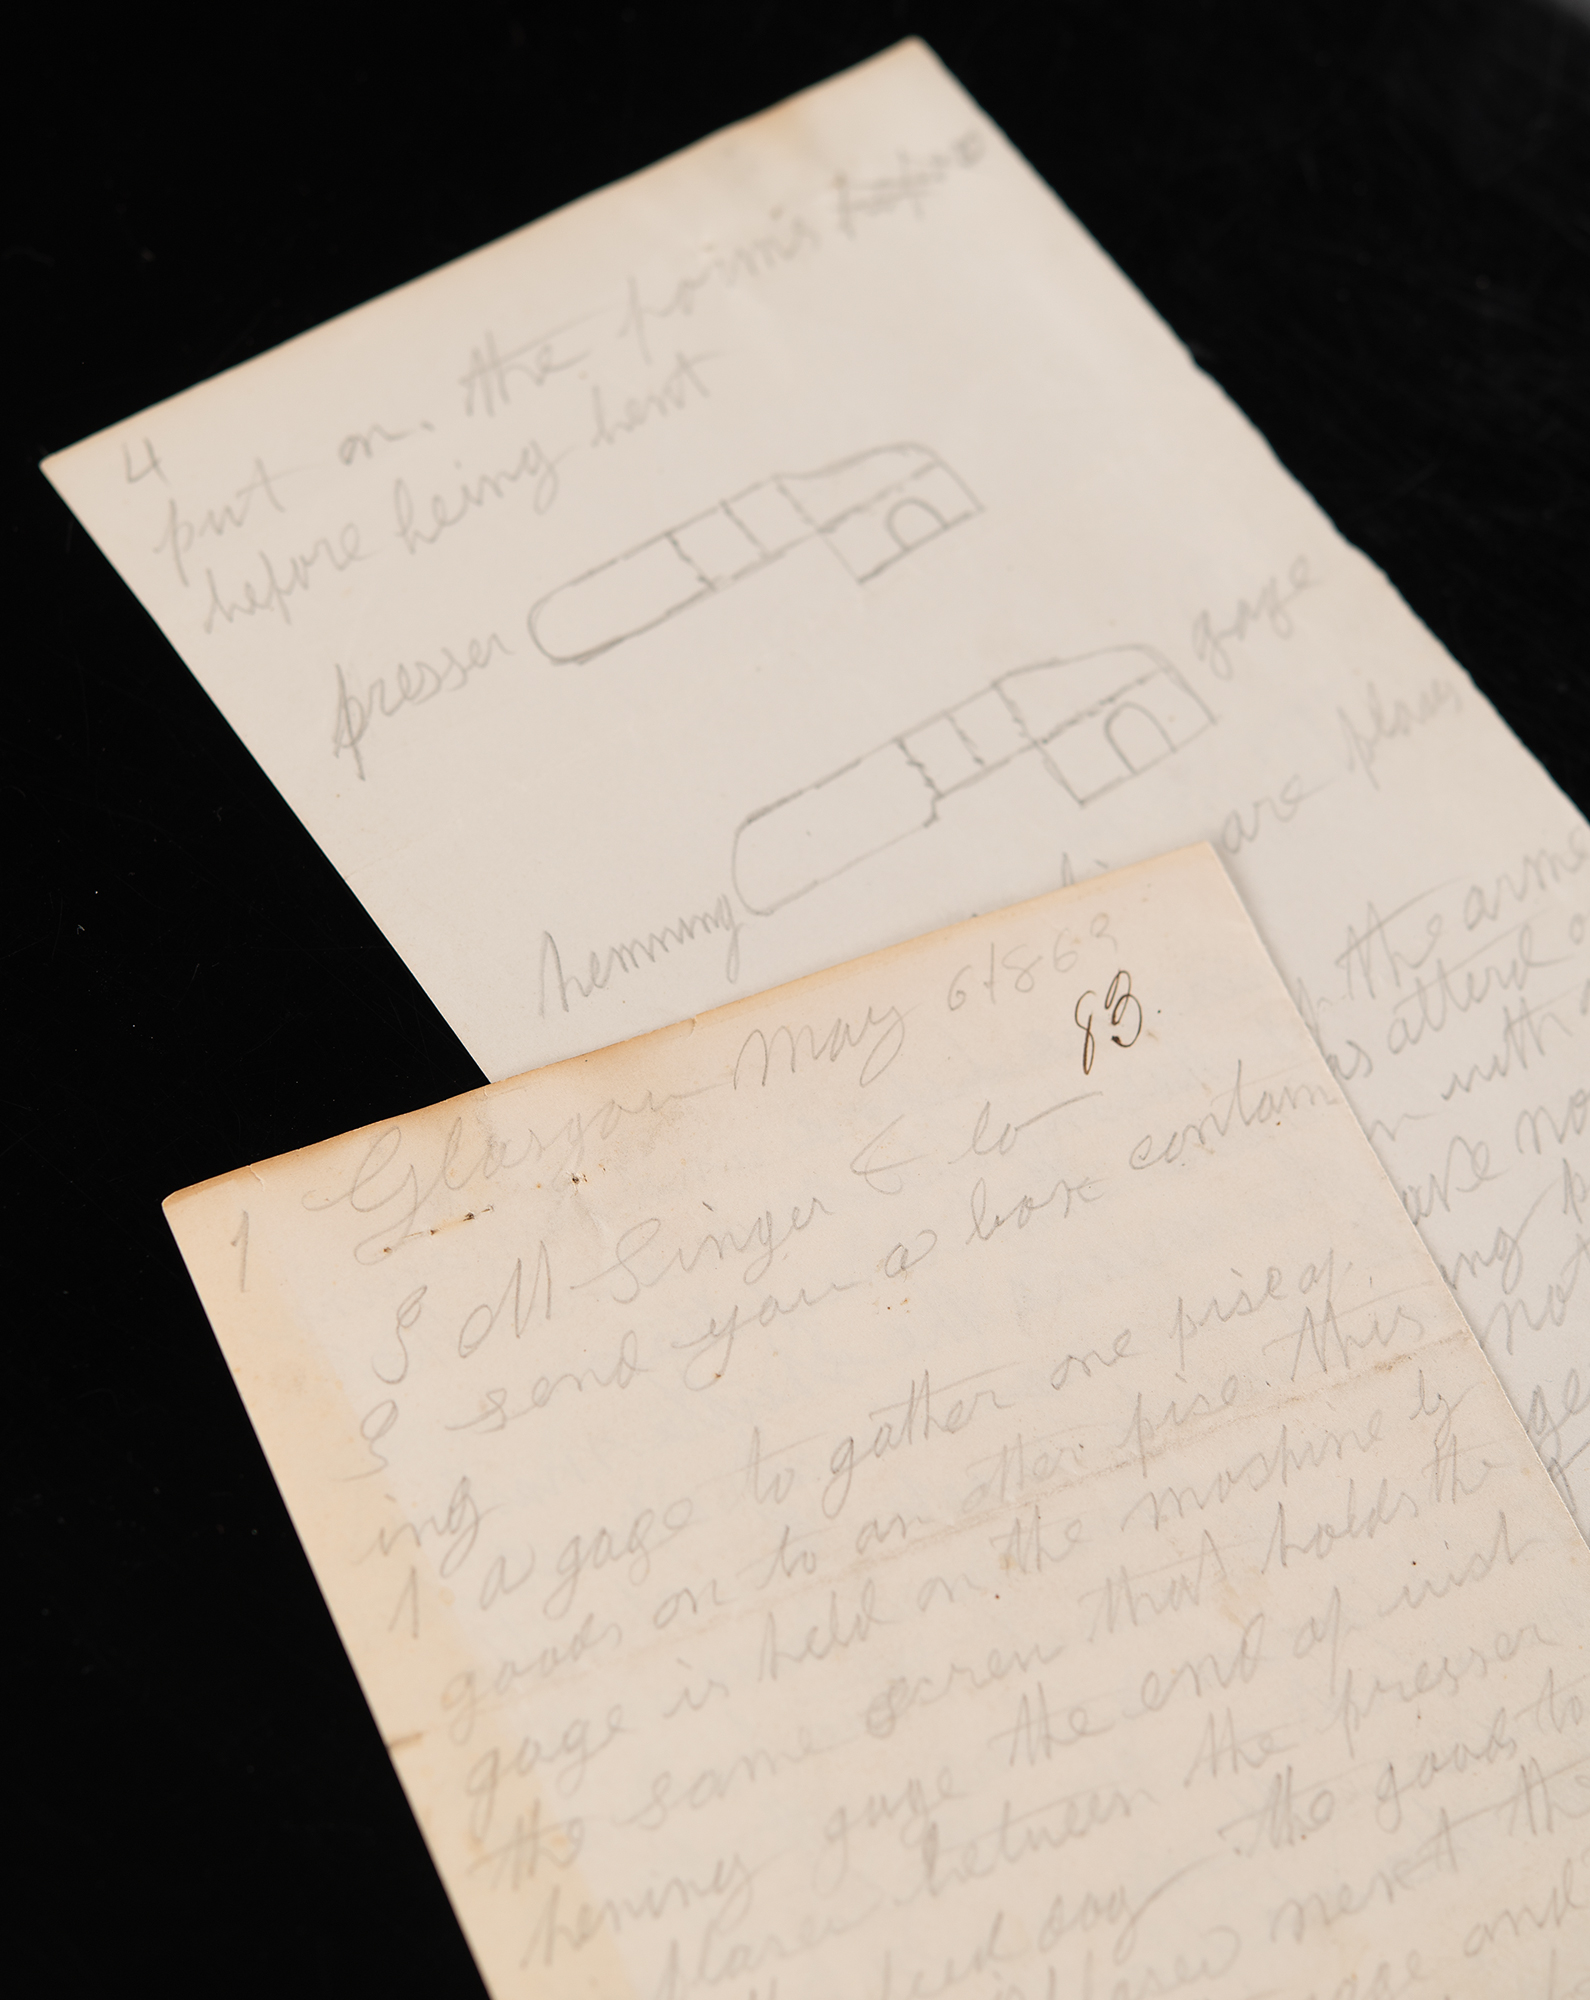 4
put on. the poimis
before being bent
presser
gage
hemming
are plases
the arme
as atterd
with
have no
ing
not
ge
Glasgow May 6 1869
83.
1
I M Singer & Co
I send you a box contain
ing
1 a gage to gather one pise of
goods on to an other pise. this
gage is held on the mashine by
the same scren that holds the
hening gage the end of wich
plases between the presser
feed dog the goods to
is plased next the
gage and